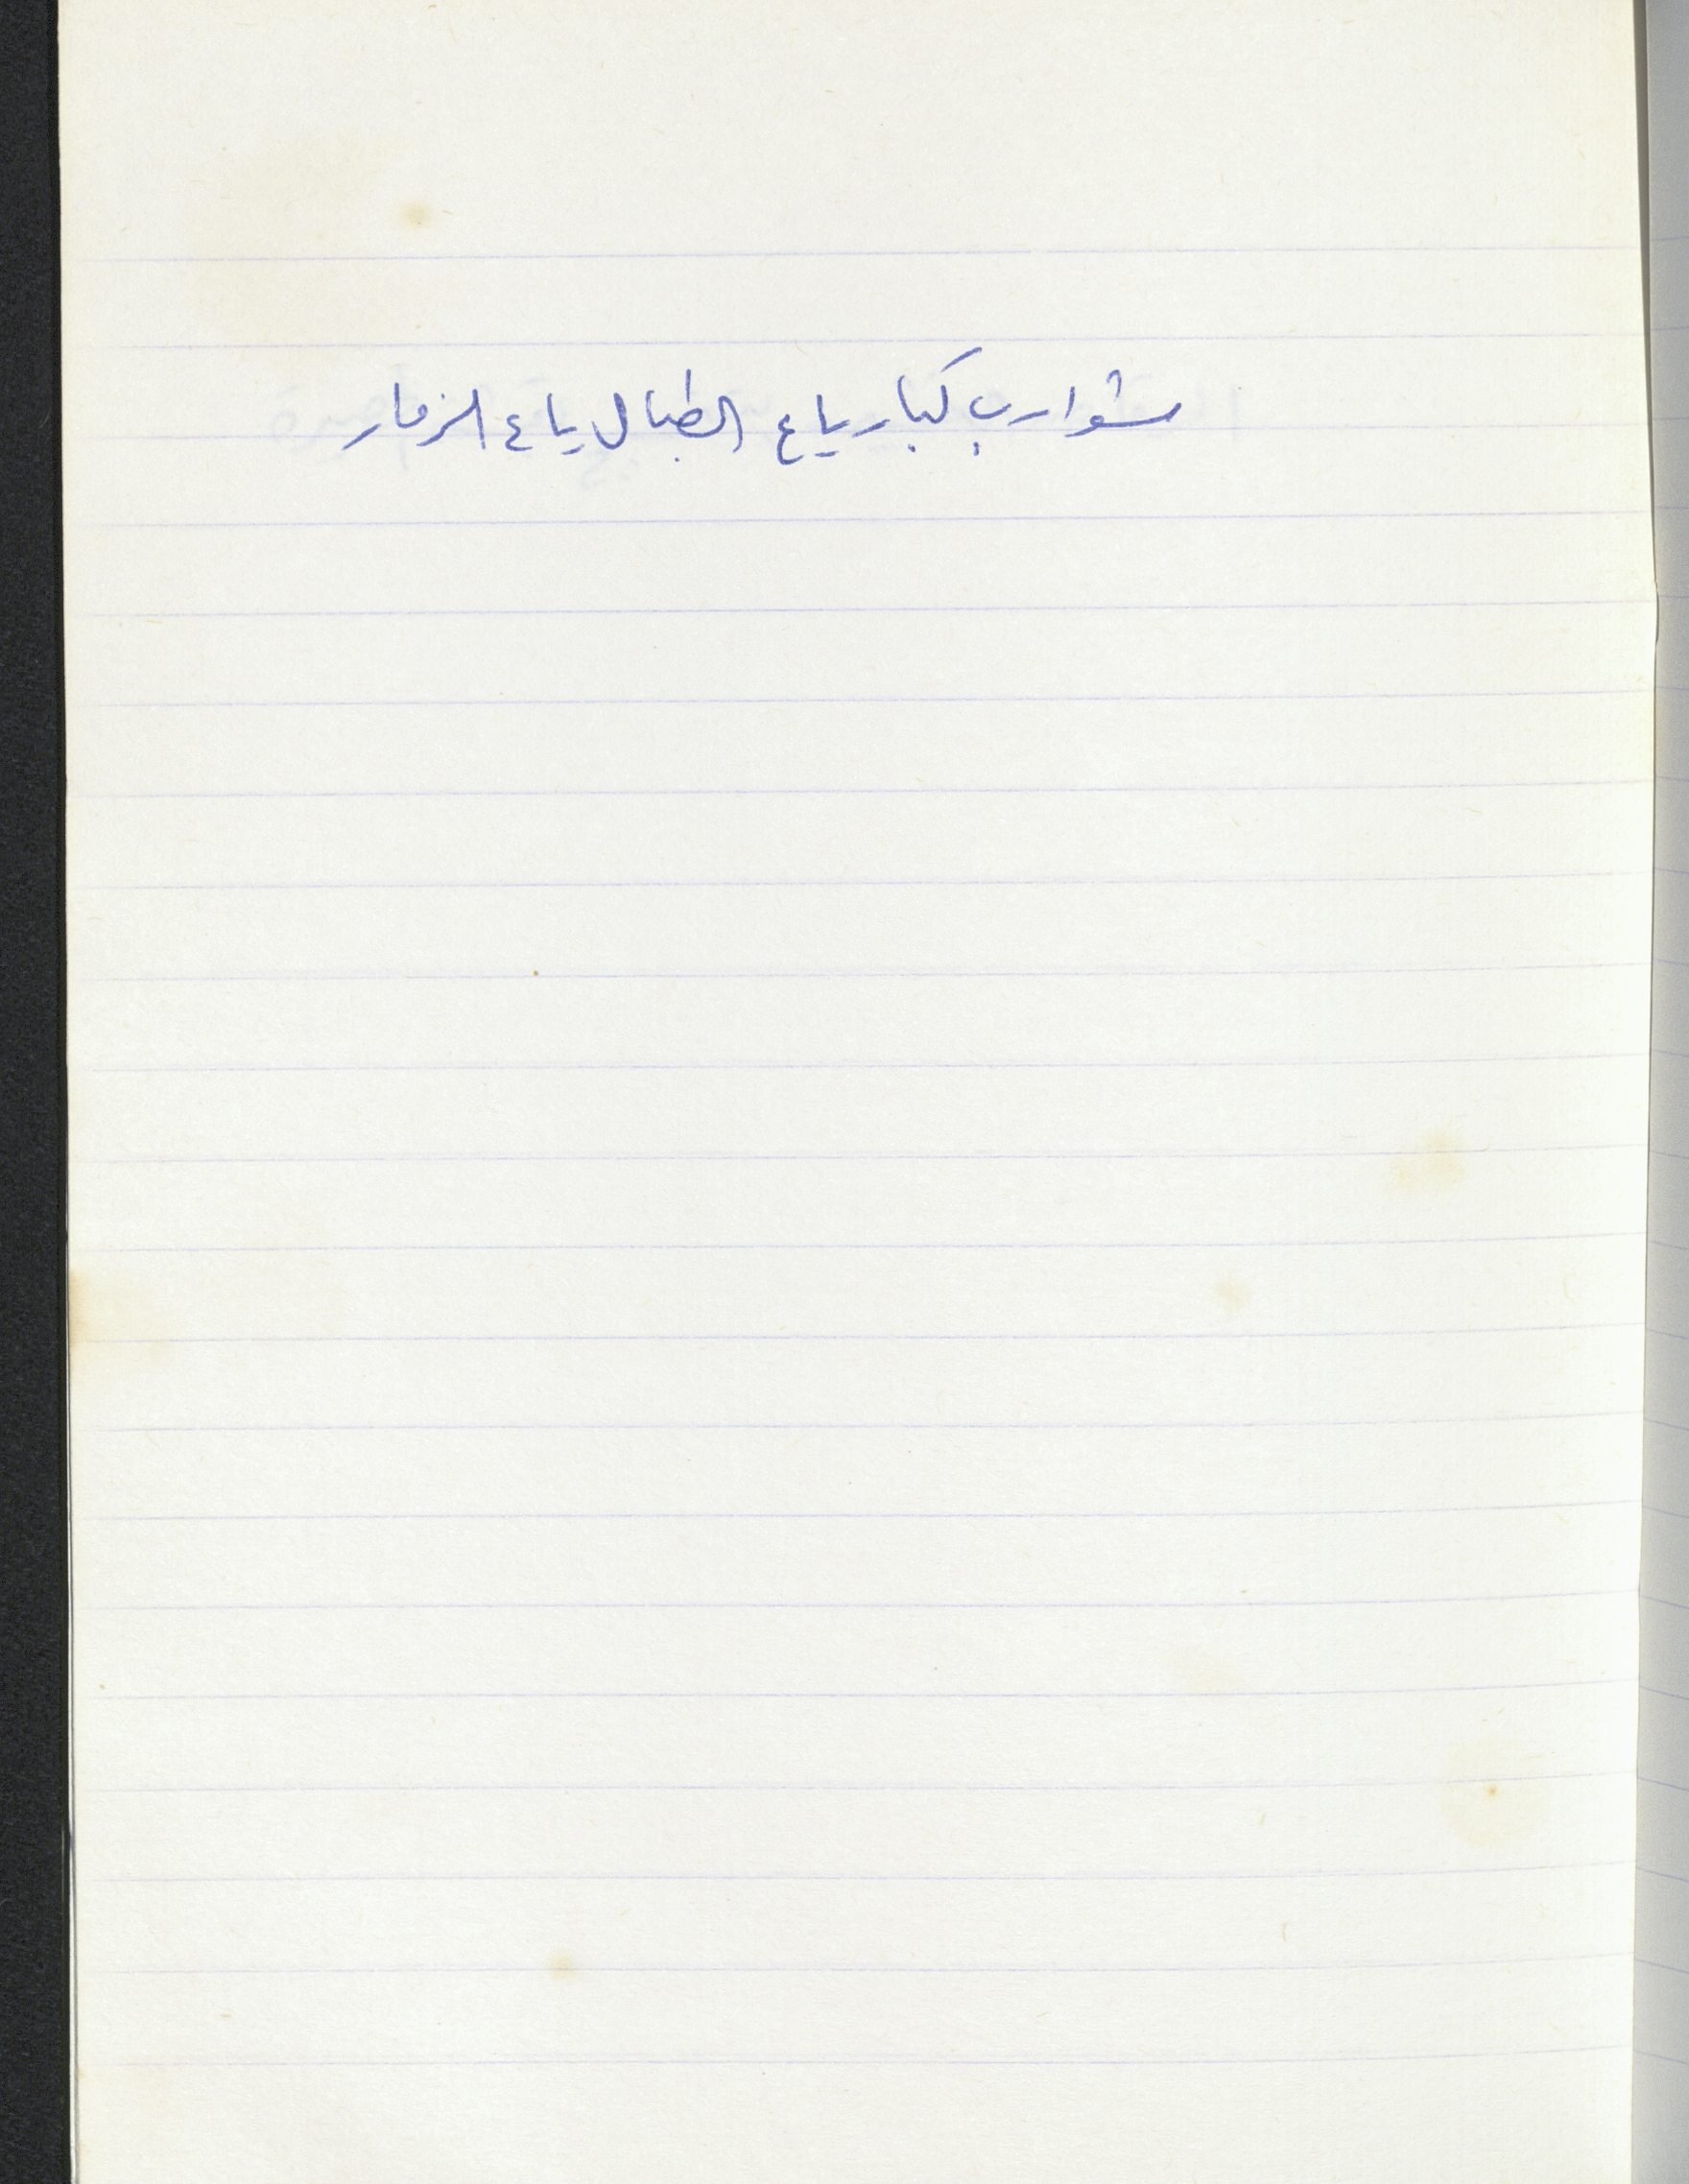 شوارب كبار يا ع الطبال يا ع الزمار